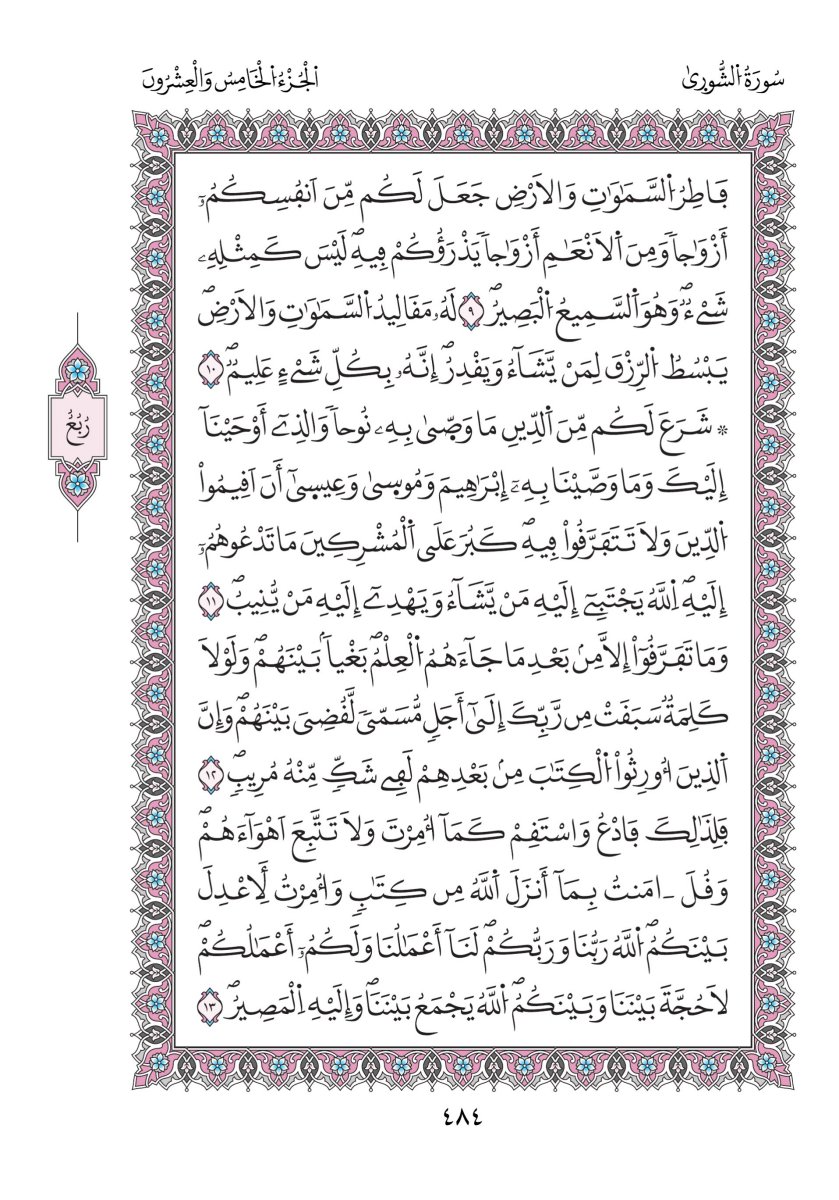 سُورَةُ اُلشُّورٜىٰ
اَلْجُزْءُ اُلْخَامِسُ وَالْعِشْرُونَ
فَاطِرُ اُلسَّمَٰوَٰتِ وَالَارْضِ جَعَلَ لَكُم مِّنَ اَنفُسِكُمُۥٓ
أَزْوَٰجاٗ وَمِنَ اَلَانْعَٰمِ أَزْوَٰجاٗ يَذْرَؤُكُمْ فِيهِۖ لَيْسَ كَمِثْلِهِۦ
شَےْءٞۖ وَهُوَ اَلسَّمِيعُ اُلْبَصِيرُۖ ٩ لَهُۥ مَقَالِيدُ اُلسَّمَٰوَٰتِ وَالَارْضِۖ
يَبْسُطُ اُلرِّزْقَ لِمَنْ يَّشَآءُ وَيَقْدِرُۖ إِنَّهُۥ بِكُلِّ شَےْءٍ عَلِيمٞۖ ١٠
* شَرَعَ لَكُم مِّنَ اَلدِّينِ مَا وَصّ۪ىٰ بِهِۦ نُوحاٗ وَالذِےٓ أَوْحَيْنَآ
إِلَيْكَ وَمَا وَصَّيْنَا بِهِۦٓ إِبْرَٰهِيمَ وَمُوس۪ىٰ وَعِيس۪ىٰٓ أَنَ اَقِيمُواْ
اُلدِّينَ وَلَا تَتَفَرَّقُواْ فِيهِۖ كَبُرَ عَلَى اَلْمُشْرِكِينَ مَا تَدْعُوهُمُۥٓ
إِلَيْهِۖ اِ۬للَّهُ يَجْتَبِےٓ إِلَيْهِ مَنْ يَّشَآءُ وَيَهْدِےٓ إِلَيْهِ مَنْ يُّنِيبُۖ ١١
وَمَا تَفَرَّقُوٓاْ إِلَّا مِنۢ بَعْدِ مَا جَآءَهُمُ اُلْعِلْمُۖ بَغْياَۢ بَيْنَهُمْۖ وَلَوْلَا
كَلِمَةٞ سَبَقَتْ مِن رَّبِّكَ إِلَىٰٓ أَجَلٖ مُّسَمّىٗ لَّقُضِيَ بَيْنَهُمْۖ وَإِنَّ
اَلذِينَ أُورِثُواْ اُلْكِتَٰبَ مِنۢ بَعْدِهِمْ لَفِے شَكّٖ مِّنْهُ مُرِيبٖۖ ١٢
فَلِذَٰلِكَ فَادْعُ وَاسْتَقِمْ كَمَآ أُمِرْتَ وَلَا تَتَّبِعَ اَهْوَآءَهُمْۖ
وَقُلَ ـ اٰمَنتُ بِمَآ أَنزَلَ اَللَّهُ مِن كِتَٰبٖ وَأُمِرْتُ لِأَعْدِلَ
بَيْنَكُمُۖ اُللَّهُ رَبُّنَا وَرَبُّكُمْۖ لَنَآ أَعْمَٰلُنَا وَلَكُمُۥٓ أَعْمَٰلُكُمْۖ
لَا حُجَّةَ بَيْنَنَا وَبَيْنَكُمُۖ اُللَّهُ يَجْمَعُ بَيْنَنَاۖ وَإِلَيْهِ اِلْمَصِيرُۖ ١٣
رُبُعُ
٤٨٤